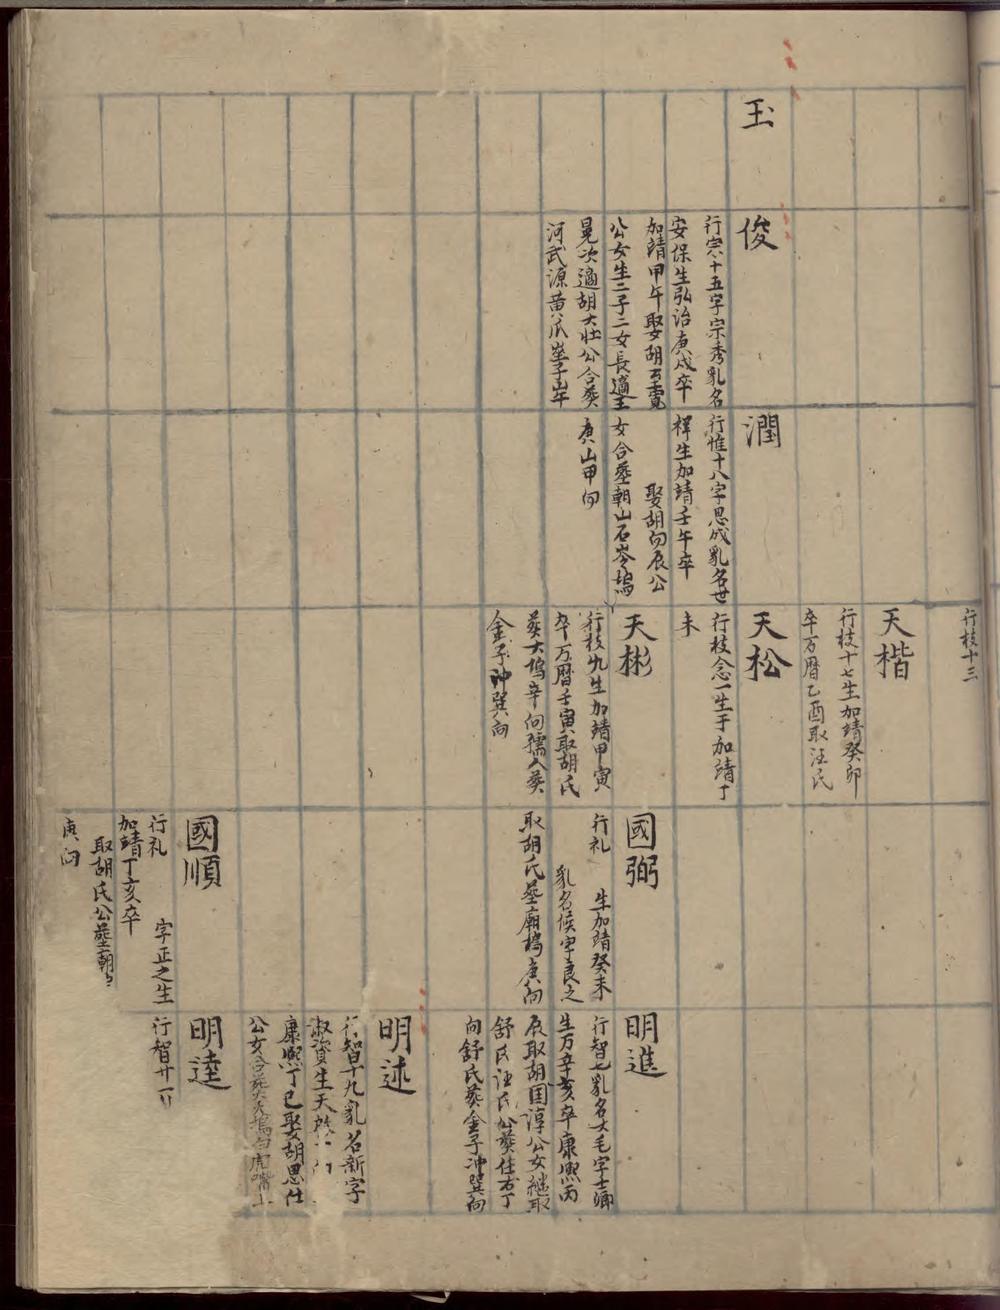 玉
俊
行宗十五字宗秀乳名
安保生弘治庚戌卒
加靖甲午娶胡云寬
公女生二子二女長適王
晃次適胡大壯公合葬
河武源黄瓜坐子山午
潤
行惟十八字思成乳名世
檡生加靖壬午卒
娶胡向辰公
女合墓朝山石岺塢
庚山甲向
行枝十三
天楷
行枝十七生加靖癸卯
卒万曆乙酉取汪氏
天松
行枝念一生于加靖丁
未
天彬
行枝九生加靖甲寅
卒万曆壬寅取胡氏
葬大塢辛向孺人葬
金子冲巽向
國弼
行礼 生加靖癸未
乳名候字良之
取胡氏墓廟塢庚向
國順
行礼 字正之生
加靖丁亥卒
取胡氏公墓朝
庚向
明進
行智七乳名大毛字士卿
生万辛亥卒康熈丙
辰取胡国淳公女継取
舒氏汪氏公葵住右丁
向舒氏葵金子冲巽向
明述
行智十九乳名新字
淑資生天
康熈丁巳娶胡思仕
公女合葬大塢白虎嘴上
明逵
行智廿一